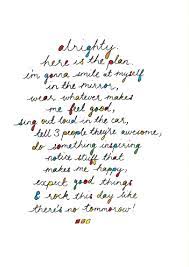 alrighty
here is the plan.
i'm gonna smile at myself
in the mirror,
wear whatever makes
me feel good,
sing out loud in the car,
tell 3 people they're awesome,
do something inspiring
notice stuff that
makes me happy,
expect good things
& rock this day like
there's no tommorow!